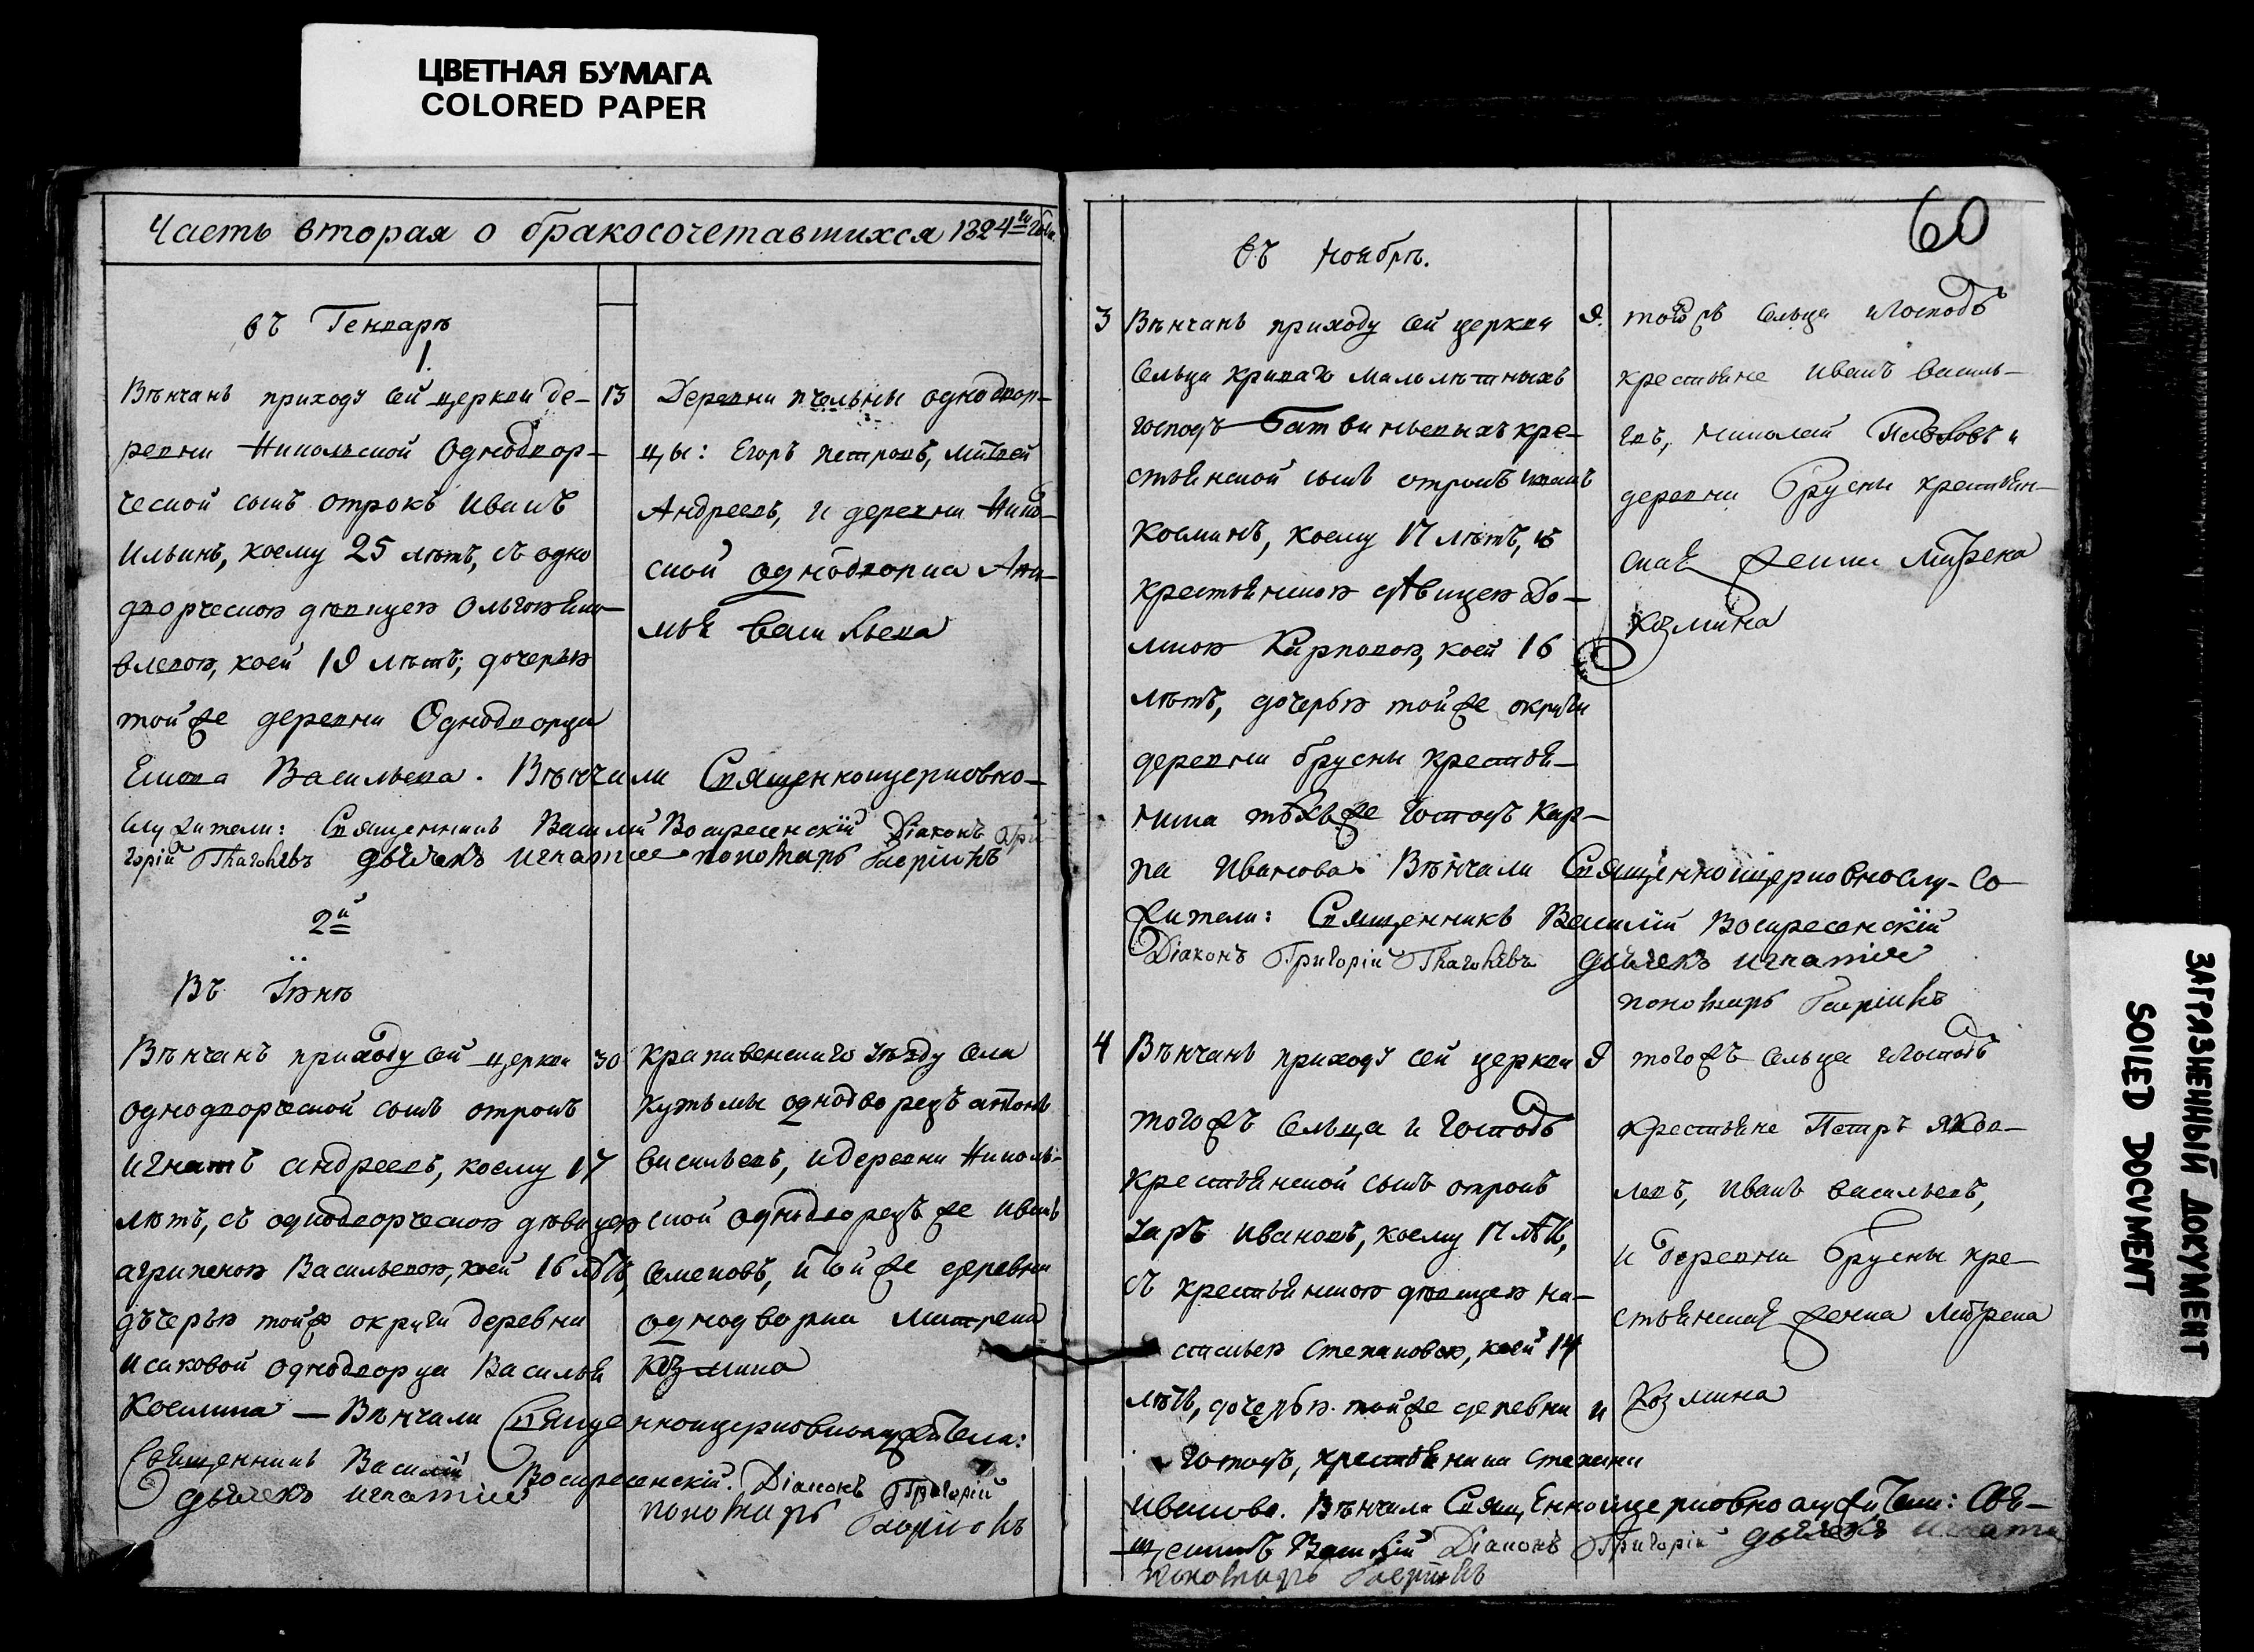 ЦВЕТНАЯ БУМАГА
COLORED PAPER
Часть вторая о бракосочетавшихся 1824го года
въ Генваръ
1.
Вѣнчанъ приходу сей церкви де-
ревни Никольской Однодвор-
ческой сынъ отрокъ Иванъ
Ильинъ, коему 25 лѣтъ, съ одно
дворческою дѣвицею Ольгою Ели-
влевою, коей 19 лѣтъ; дочерью
той же деревни Однодворца
Васильева. Вѣнчали Священноцерковно-
служители: Священникъ Василій Воскресенскій Діаконъ Гри-
горій Глаголевъ дьячекъ игнатие пономарь
13
Деревни пчельны однодвор-
цы: Егоръ петровъ,
Андреевъ, и деревни Никол-
ской однодворца
Васильева
2й
Въ Іюнѣ
Вѣнчанъ приходу сей церкви
однодворческой сынъ отрокъ
игнатъ андреевъ, коему 17
лѣтъ, съ однодворческою дѣвицею
агрипеною Васильевою, коей 16 лѣтъ,
дочерью той же округи деревни
исаковой однодворца Василья
Космина — Вѣнчали Священноцерковнослужители:
Священникъ Василій Воскресенскій. Діаконъ Григорій
дьячекъ игнатие пономарь
30
крапивенскаго уѣзду села
кузьмы однодворецъ антонъ
васильевъ, и деревни Николь-
ской однодворецъ же иванъ
Семеновъ, и той же деревни
однодворка Матрена
козмина
60
въ Ноябрѣ.
3 Вѣнчанъ приходу сей церкви
Сельца малолѣтныхъ
господъ кре-
стьянской сынъ отрокъ
Косминъ, коему 17 лѣтъ, съ
крестьянскою дѣвицею До-
мною Карповою, коей 16
лѣтъ, дочерью той же округи
деревни брусны крестья-
нина тѣхъ же господъ Кар-
па Иванова. Вѣнчали Священноцерковнослу-
жители: Священникъ Василій Воскресенскій
Діаконъ Григорій Глаголевъ дьячекъ игнатие
пономарь
9.
тогожъ сельца господъ
крестьяне иванъ василь-
евъ, николай Павловъ и
деревни брусны крестьян-
ская женка Матрена
козмина
4 Вѣнчанъ приходу сей церкви
тогожъ сельца и господъ
крестьянской сынъ отрокъ
ивановъ, коему 17 лѣтъ,
съ крестьянскою дѣвицею на-
стасьею Степановою, коей 14
лѣтъ, дочерью той же деревни и
господъ, крестьянина степана
иванова. Вѣнчали Священноцерковнослужители: Свя-
щенникъ Василій Діаконъ Григорій дьячекъ игнати
пономарь
9
тогожъ сельца господъ
крестьяне Петръ яков-
левъ, иванъ васильевъ,
и деревни брусны кре-
стьянская женка Матрена
козмина
ЗАГРЯЗНЕННЫЙ ДОКУМЕНТ
SOILED DOCUMENT